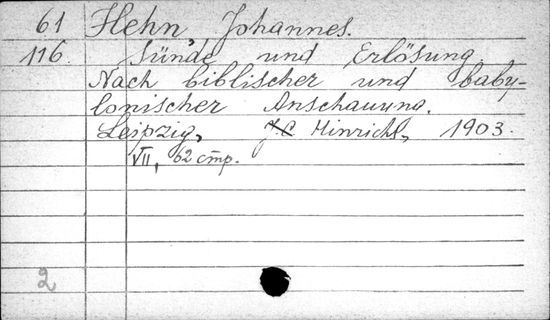 61 Hehn, Johannes.
116. Sünde und Erlösung
Nach biblischer und baby-
lonischer Anschauung.
Leipzig, J.C. Hinrichs, 1903.
VII, 62 стр.
2